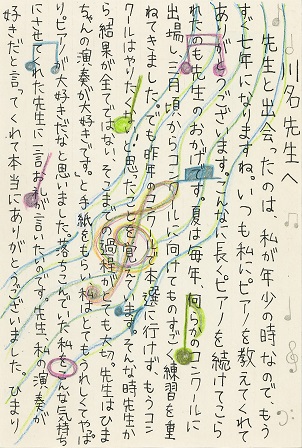 川名先生へ
先生と出会ったのは、私が年少の時なので、もう
すぐ七年になりますね。いつも私にピアノを教えてくれて
ありがとうございます。こんなに長くピアノを続けてこら
れたのも先生のおかげです。夏は毎年、何らかのコンクールに
出場し、三月頃からコンクールに向けてものすごく練習を重
ねてきました。でも昨年のコンクールで本選に行けず、もうコン
クールはやりたくないと思ったことを覚えています。そんな時先生か
ら「結果が全てではない。そこまでの過程がとても大切。先生はひま
りちゃんの演奏が大好きです。」と手紙をもらい、私はとてもうれしくてやっぱ
りピアノが大好きだなと思いました。落ちこんでいた私をこんな気持ち
にさせてくれた先生に一言お礼が言いたいのです。先生、私の演奏が
好きだと言ってくれて本当にありがとうございました。ひまり